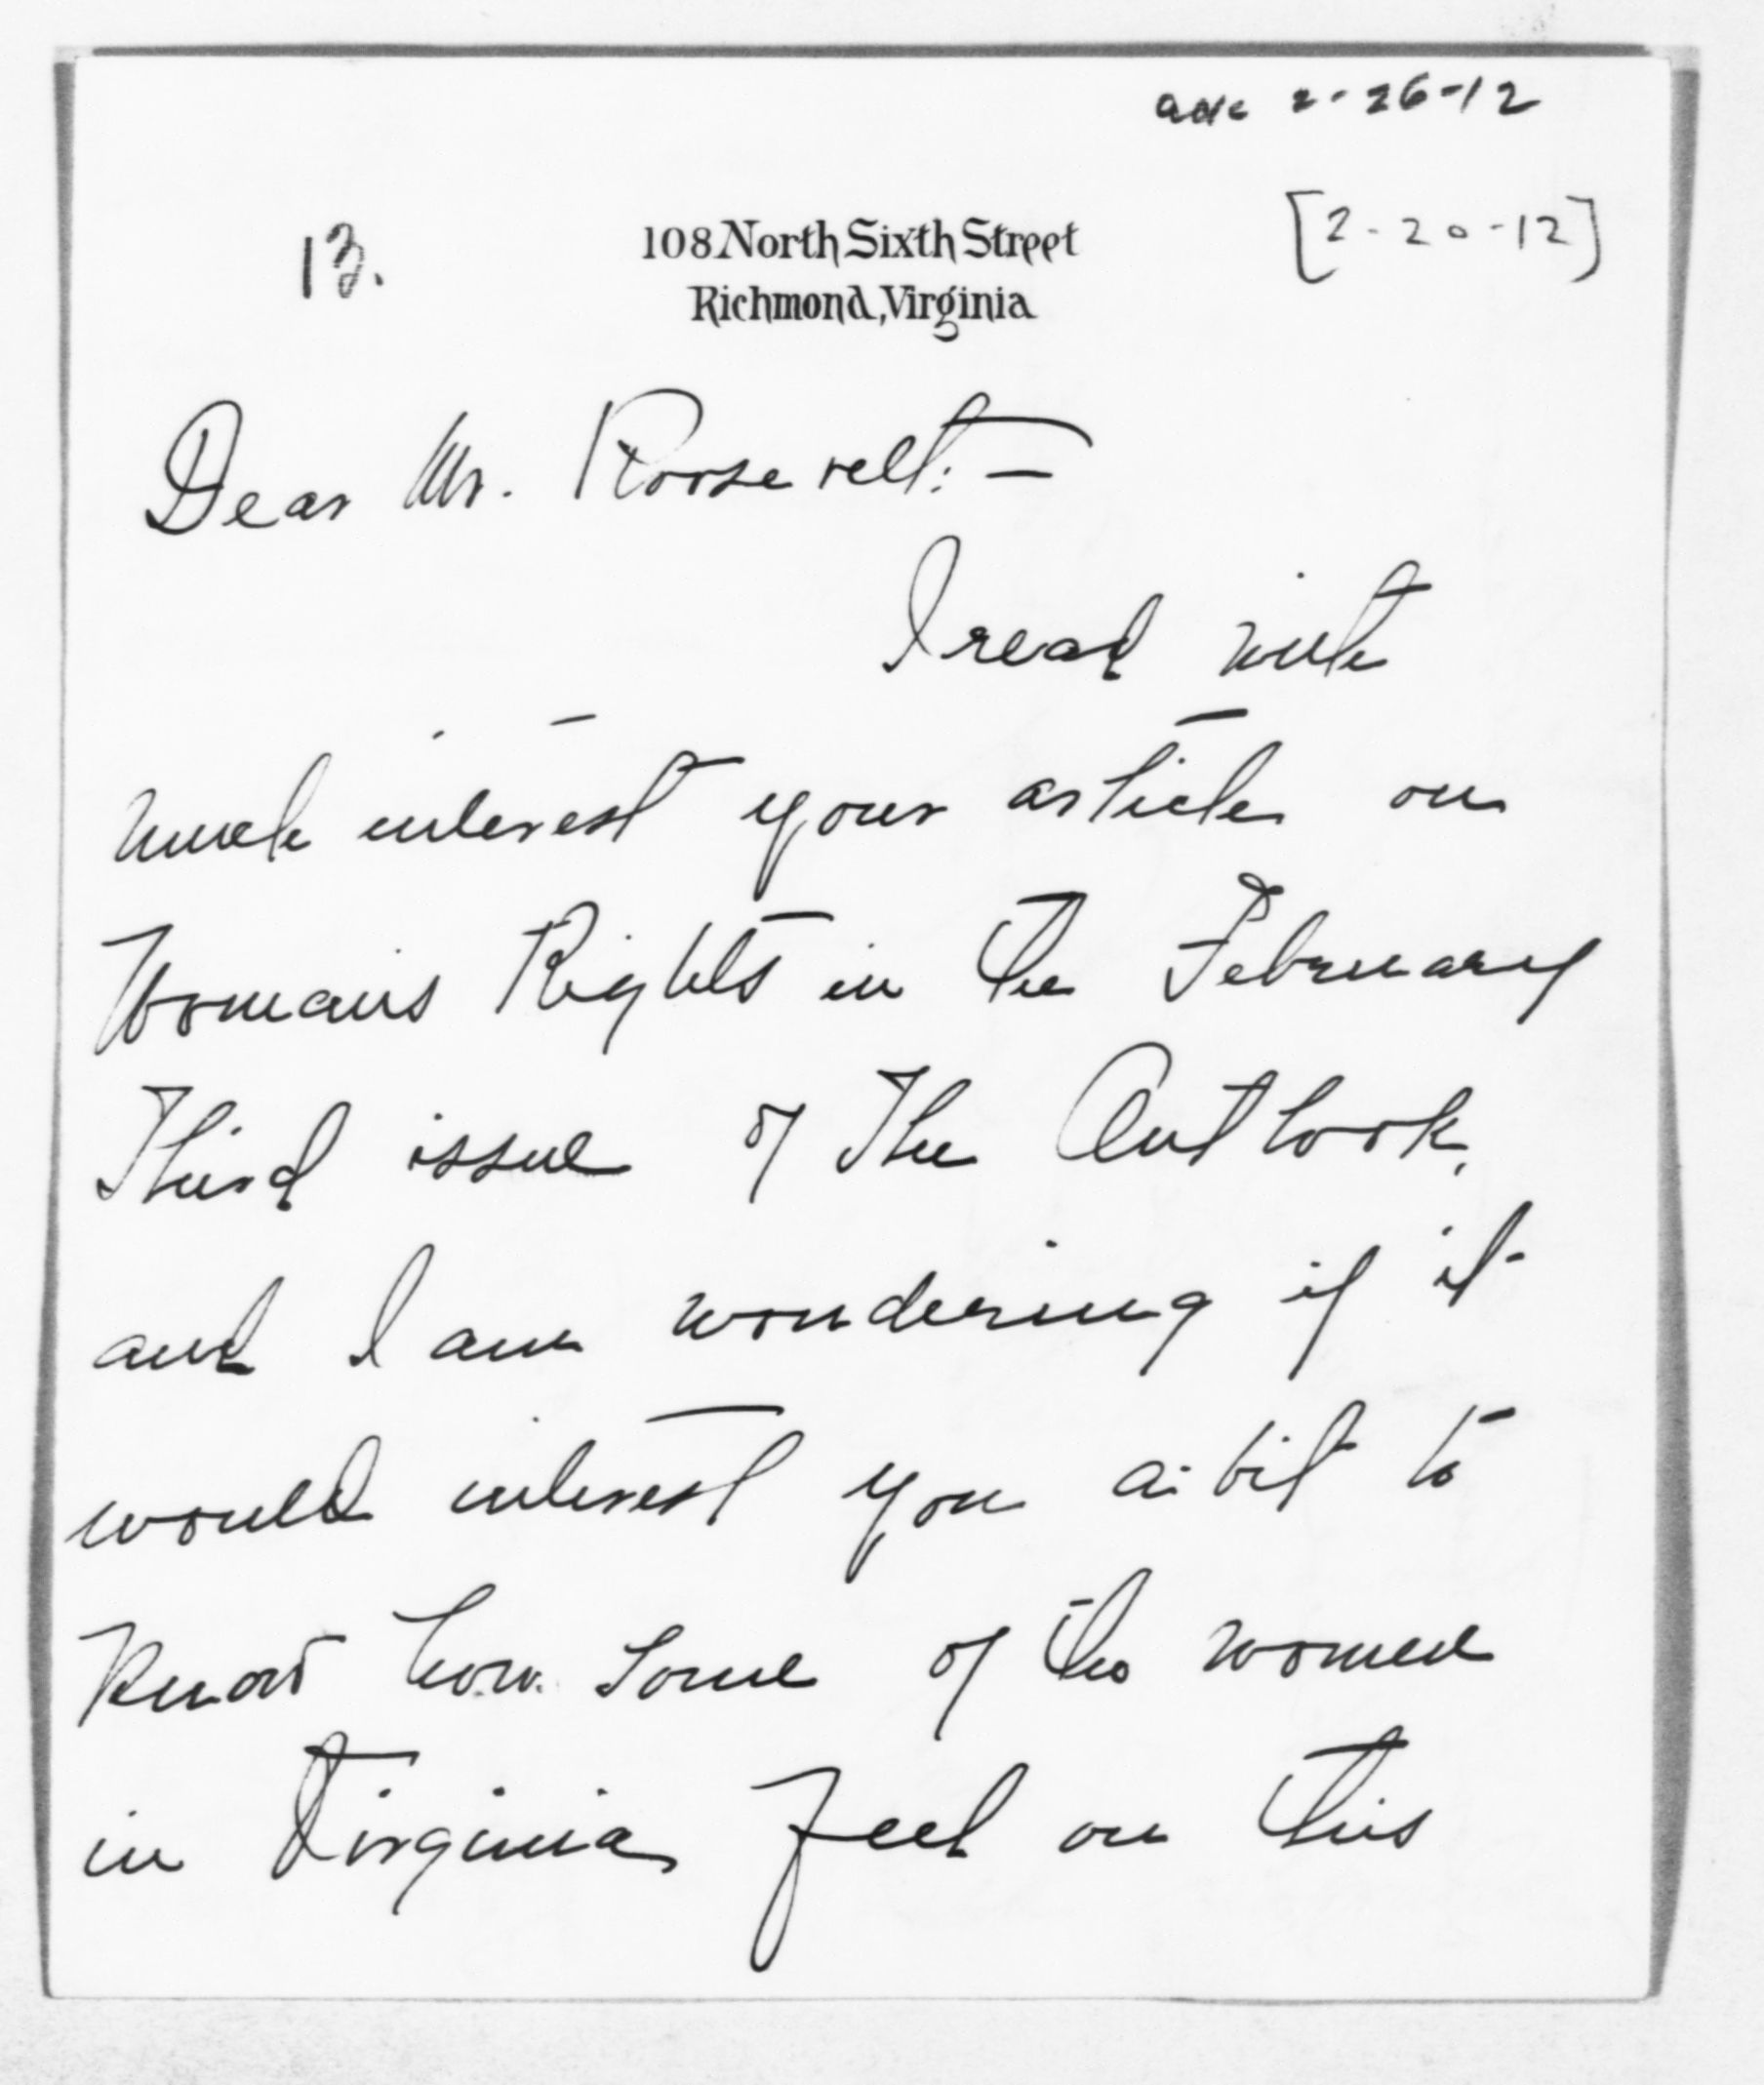 ack 2-26-12
[2-20-12]
13.
108 North Sixth Street
Richmond, Virginia
Dear Mr. Roosevelt: —
I read with
much interest your article on
Woman's Rights in the February
Third issue of The Outlook,
and I am wondering if it
would interest you a bit to
know how some of the women
in Virginia feel on this